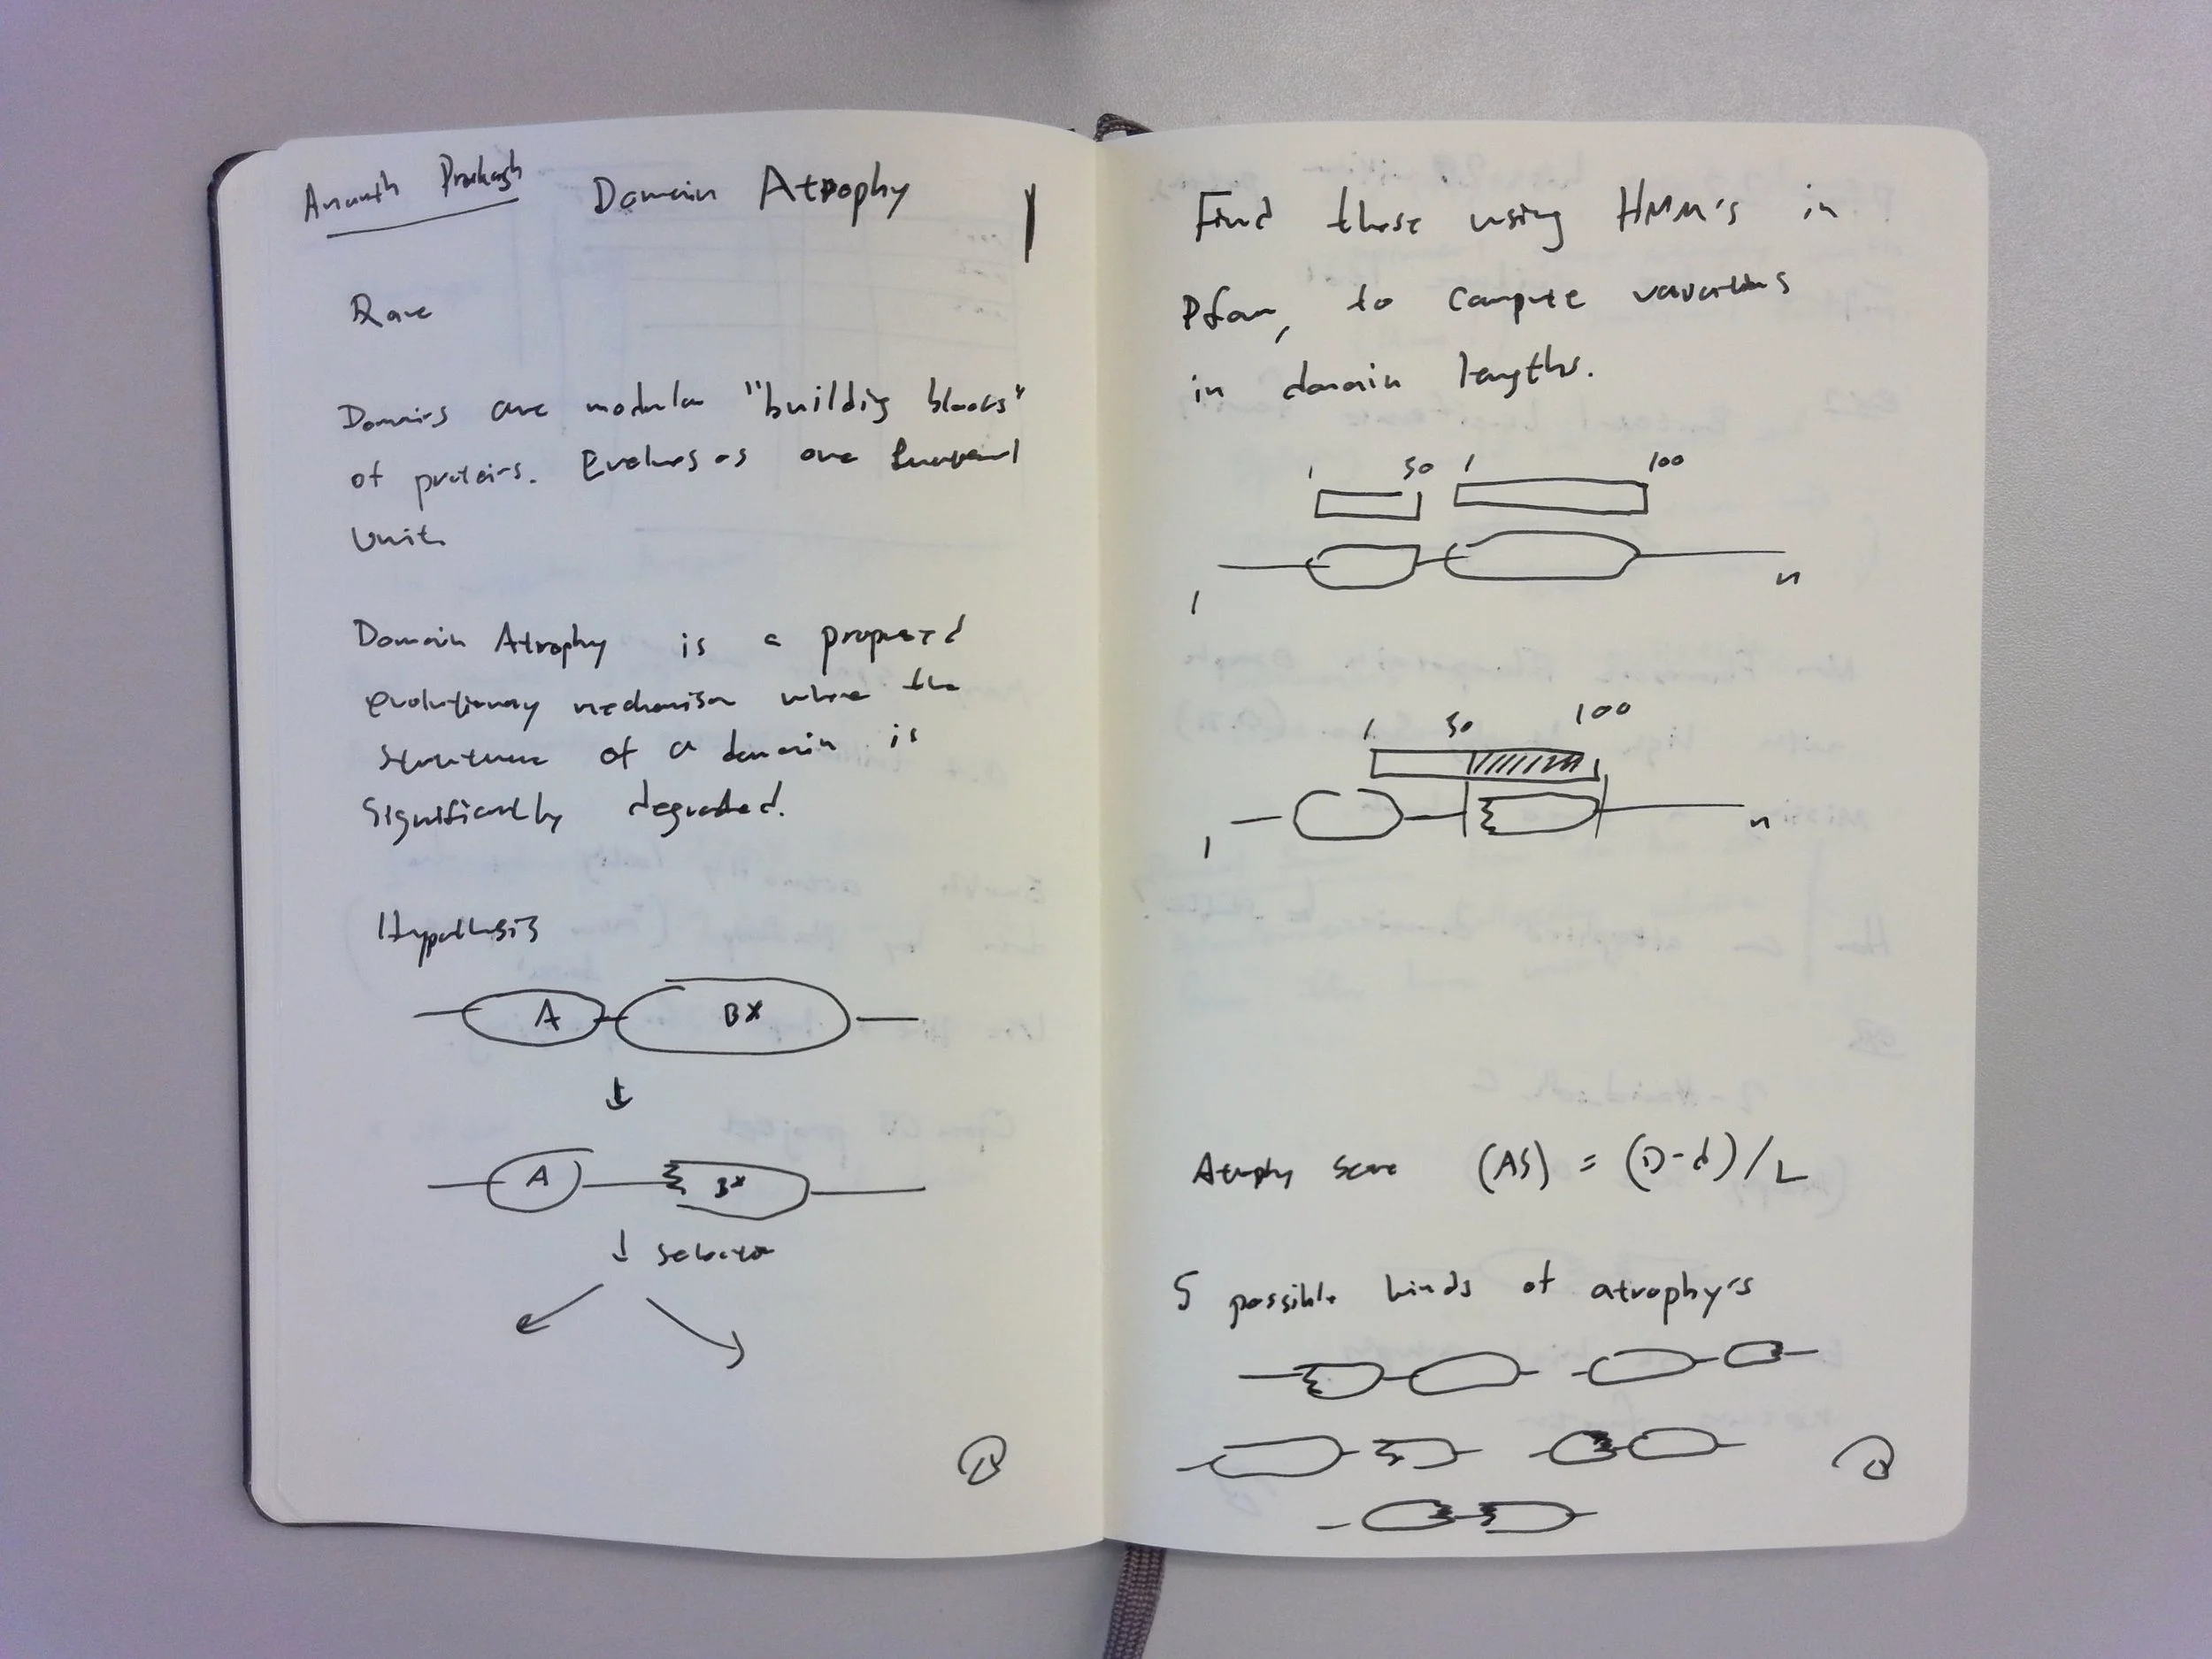 Ananth Prakash Domain Atrophy
Rare
Domains are modular "building blocks"
of proteins. Evolves as one functional
Unit.
Domain Atrophy is a proposed
evolutionary mechanism where the
structure of a domain is
significantly degraded.
Hypothesis
A B*
A B*
selection
Find these using HMM's in
Pfam, to compute variations
in domain lengths.
1 50 1 100
1 n
1 50 100
1 n
Atrophy Score (AS) = (D-d)/L
5 possible kinds of atrophy's